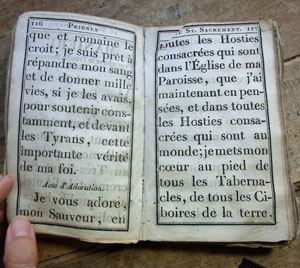 116 PRIÈRES
que et romaine le
croit; je suis prêt à
répandre mon sang
et de donner mille
vies, si je les avais,
pour soutenir cons-
tamment, et devant
les Tyrans, cette
importante vérité
de ma foi.
Acte d'Adoration.
Je vous adore,
mon Sauveur, en
ST. SACREMENT. 117
toutes les Hosties
consacrées qui sont
dans l'Église de ma
Paroisse, que j'ai
maintenant en pen-
sées, et dans toutes
les Hosties consa-
crées qui sont au
monde; je mets mon
cœur au pied de
tous les Taberna-
cles, de tous les Ci-
boires de la terre.